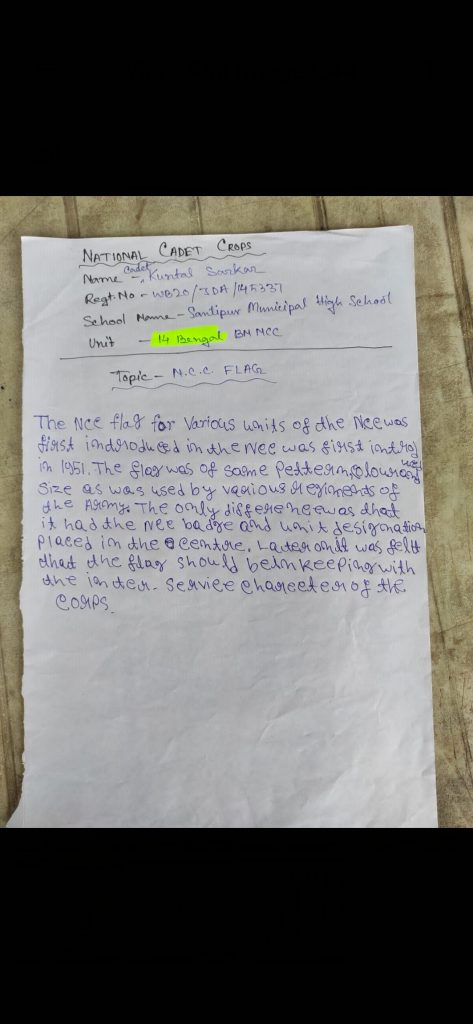 NATIONAL CADET CROPS
Name - Cadet Kuntal Sarkar
Regt. No - WB20/JDA/145337
School Name - Santipur Municipal High School
Unit - 14 Bengal BN NCC
Topic - N.C.C. FLAG
The Ncc flag for Various units of the Ncc was
first indroduced in the Ncc was first introduced
in 1951. The flag was of same Pettern, Colour and
Size as was used by various Regiments of
the Army. The only difference was dhat
it had the Ncc badge and unit designation
Placed in the centre. Later on it was felt
dhat dhe flag should be in keeping with
dhe inder-service charecter of the
CORPS.